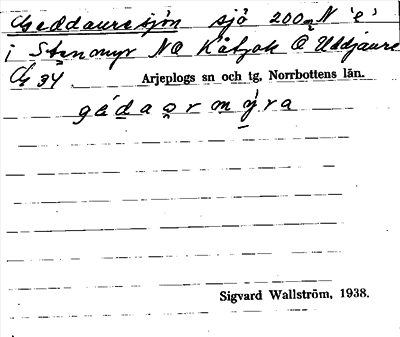 Geddauresjön sjö 200 m N 'e'
i Stenmyr NO Kåtjok O Uddjaure
G 34 Arjeplogs sn och tg, Norrbottens län.
gédaormỳra
Sigvard Wallström, 1938.